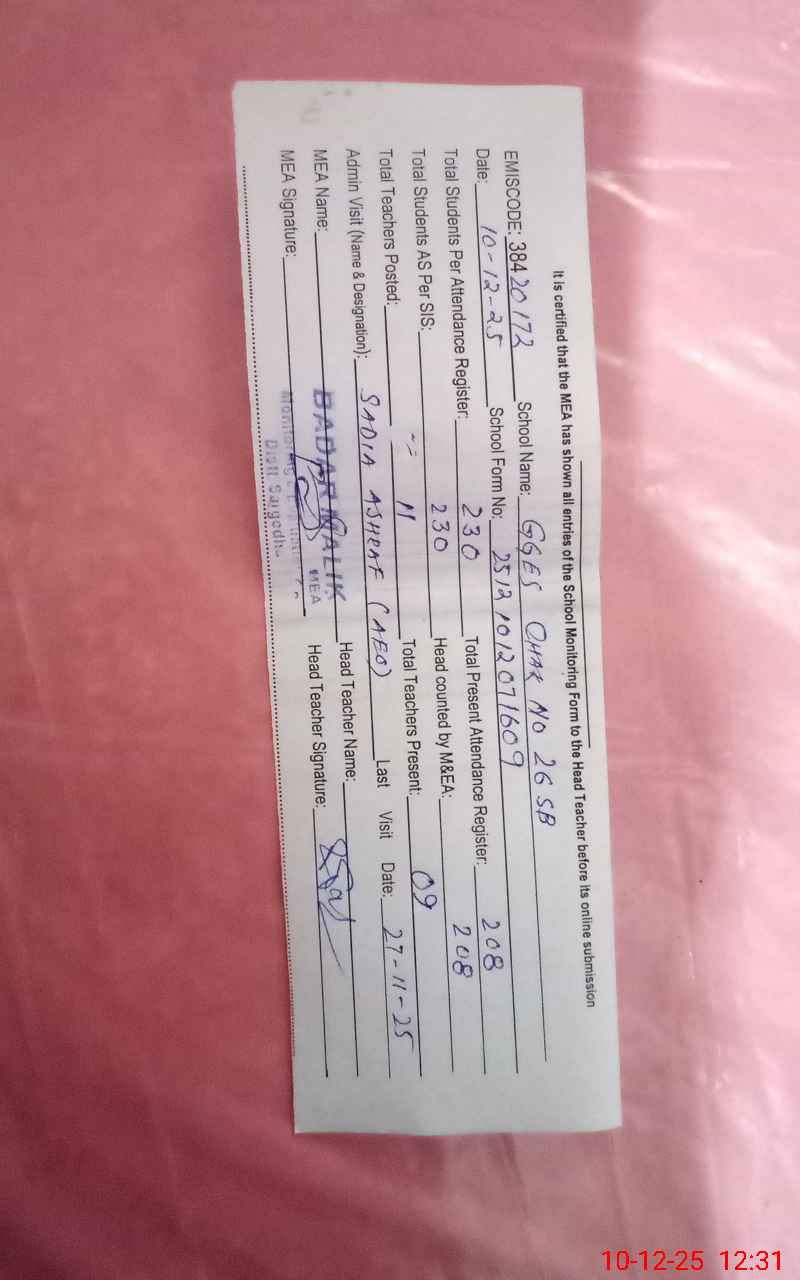 It is certified that the MEA has shown all entries of the School Monitoring Form to the Head Teacher before its online submission
EMISCODE: 38420172 School Name: GGES CHAK NO 26 SB
Date: 10-12-25 School Form No: 25121012071609
Total Students Per Attendance Register: 230 Total Present Attendance Register: 208
Total Students AS Per SIS: 230 Head counted by M&EA: 208
Total Teachers Posted: 11 Total Teachers Present: 09
Admin Visit (Name & Designation): SADIA ASHRAF (AEO) Last Visit Date: 27-11-25
MEA Name: BADAR MALIK MEA Head Teacher Name:
MEA Signature: Distt Sargodha Head Teacher Signature:
10-12-25 12:31